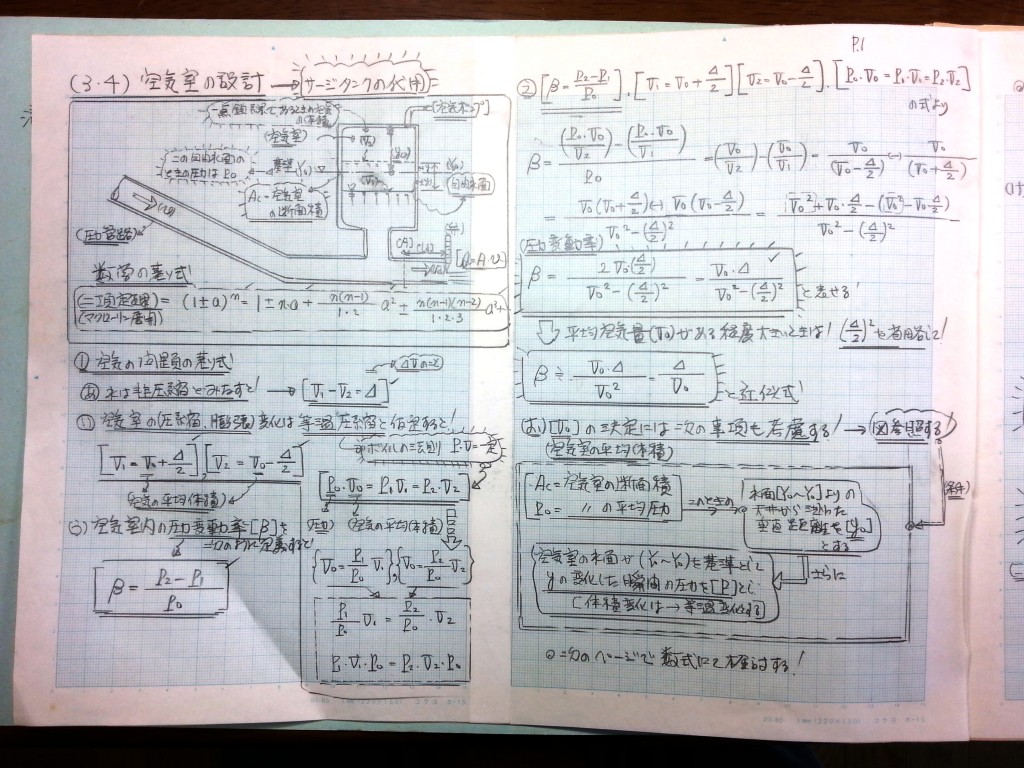 P.1
(3.4) 空気室の設計 → (サージタンクの代用)
[空気ポンプ]
(空気室)
この自由水面の
ときの圧力は P₀
基準(Y₀)
(自由水面)
Ac=空気室
の断面積
(圧力管路)
[Q=A・v]
数学の基り式
(二項定理) = (1±a)ⁿ = 1±n・a + n(n-1)/1・2 a² ± n(n-1)(n-2)/1・2・3 a³+
(マクローリン展開)
① 空気の
水は非圧縮とみなすと! → [V₁-V₂=Δ]
空気室の(圧縮、膨張)変化は等温圧縮と仮定すると!
ボイルの法則 P・V=一定
[V₁=V₀+Δ/2], [V₂=V₀-Δ/2]
(空気の平均体積)
[P₀・V₀=P₁V₁=P₂・V₂]
(圧力) (空気の平均体積)
う) 空気室内の圧力変動率[β]を
次のように定義すると!
β = (P₂-P₁)/P₀
{V₀=P₁/P₀ V₁}, {V₀=P₂/P₀・V₂}
P₁/P₀ V₁ = P₂/P₀・V₂
P₁・V₁・P₀ = P₂・V₂・P₀
② [β=(P₂-P₁)/P₀], [V₁=V₀+Δ/2] [V₂=V₀-Δ/2], [P₀・V₀=P₁・V₁=P₂・V₂]
の式より
β = ((P₀・V₀)/V₂ - (P₀・V₀)/V₁)/P₀ = (V₀/V₂)-(V₀/V₁) = V₀/(V₀-Δ/2) - V₀/(V₀+Δ/2)
= (V₀(V₀+Δ/2) - V₀(V₀-Δ/2))/(V₀²-(Δ/2)²) = (V₀²+V₀・Δ/2-(V₀²-V₀・Δ/2))/(V₀²-(Δ/2)²)
(圧力変動率)
β = 2V₀(Δ/2)/(V₀²-(Δ/2)²) = V₀・Δ/(V₀²-(Δ/2)²) と表せる!
平均空気量(V₀)がある程度大きいときは! (Δ/2)²を省略して!
β ≒ V₀・Δ/V₀² = Δ/V₀ と近似式!
[V₀]の決定には次の事項も考慮する! → 図参照する
(空気室の平均体積)
・Ac=空気室の断面積
P₀= 〃 の平均圧力
水面[Y₀~Y₀]よりの
天井から測った
垂直距離を[y₀]
とする
(条件)
さらに
空気室の水面が(Y₀~Y₀)を基準として
yの変化した瞬間の圧力を[P]とし
体積変化は→等温変化する
◎次のページで数式にて検討する!